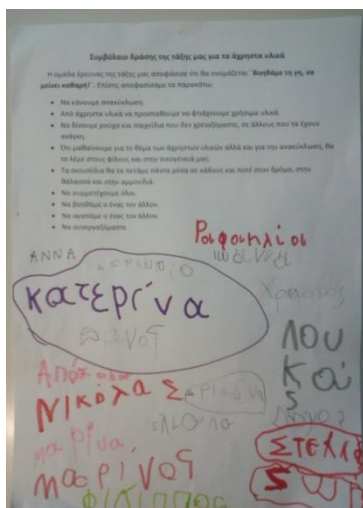 Συμβόλαιο δράσης της τάξης μας για τα άχρηστα υλικά
Η ομάδα έρευνας της τάξης μας αποφάσισε ότι θα ονομάζεται ¨Βοηθάμε τη γη, να
μείνει καθαρή!¨. Επίσης αποφασίσαμε τα παρακάτω:
• Να κάνουμε ανακύκλωση.
• Από άχρηστα υλικά να προσπαθούμε να φτιάχνουμε χρήσιμα υλικά.
• Να δίνουμε ρούχα και παιχνίδια που δεν χρειαζόμαστε, σε άλλους που τα έχουν
ανάγκη.
• Ότι μαθαίνουμε για το θέμα των άχρηστων υλικών αλλά και για την ανακύκλωση, θα
το λέμε στους φίλους και στην οικογένειά μας.
• Τα σκουπίδια θα τα πετάμε πάντα μέσα σε κάδους και ποτέ στον δρόμο, στην
θάλασσα και στην αμμουδιά.
• Να συμμετέχουμε όλοι.
• Να βοηθάμε ο ένας τον άλλον.
• Να αγαπάμε ο ένας τον άλλον.
• Να συνεργαζόμαστε.
Ραφαηλία
ΑΝΝΑ
Κατερίνα
ΘΑΝΟΣ
ΛΟΥ
Κάς
ΝΙΚΟΛΑΣ
μαρίνα
μαρίνος
ΣΤΕΛΙΟ
ΦΙΛΙΠΠΟΣ